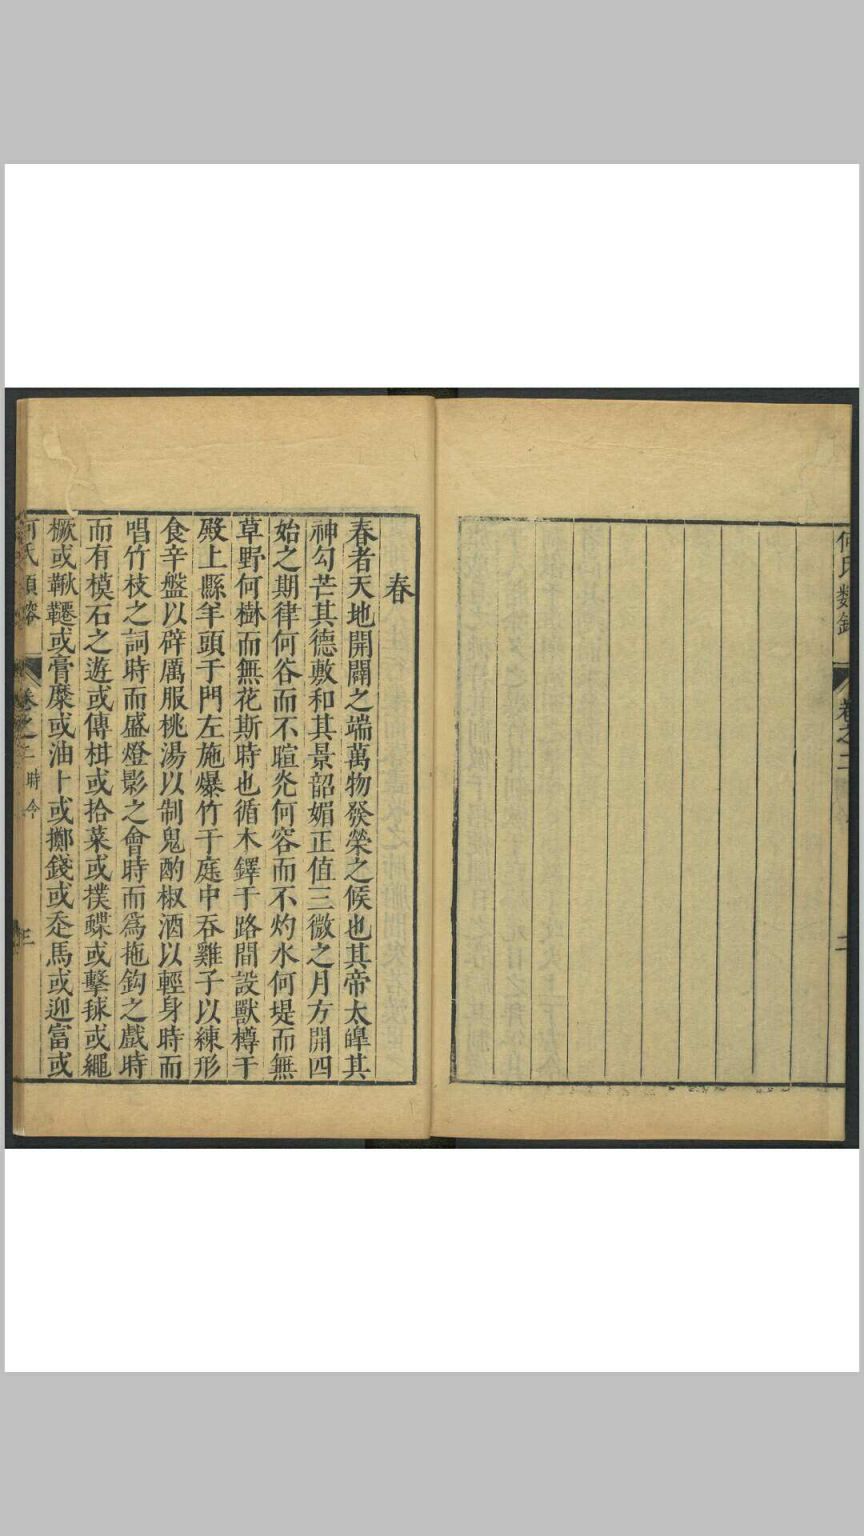 何氏類鎔
卷之二
二
春
春者天地開闢之端萬物發榮之候也其帝太皥其
神勾芒其德敷和其景韶媚正值三微之月方開四
始之期律何谷而不暄灮何容而不灼水何堤而無
草野何樹而無花斯時也循木鐸于路間設獸樽于
殿上縣羊頭于門左施爆竹于庭中吞雞子以練形
食辛盤以辟厲服桃湯以制鬼酌椒酒以輕身時而
唱竹枝之詞時而盛燈影之會時而爲拖鈎之戲時
而有模石之遊或傳柑或拾菜或撲蝶或擊毬或繩
橛或鞦韆或膏糜或油卜或擲錢或走馬或迎富或
何氏類鎔
卷之二
時令
三